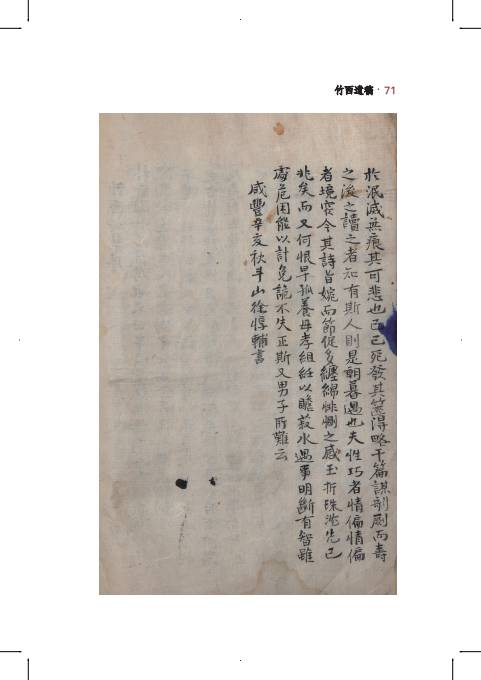 竹西遺稿 · 71
於泯滅無痕其可悲也已己死發其篋得略干篇謀剞劂而壽
之後之讀之者知有斯人則是朝暮遇也夫性巧者情偏情偏
者境窄今其詩旨婉而節促多纏綿悱惻之感玉折珠沈先已
兆矣而又何恨早孤養母孝組紝以贍菽水遇事明斷有智雖
處危困能以計免詭不失正斯又男子所難云
咸豐辛亥秋斗山徐惇輔書